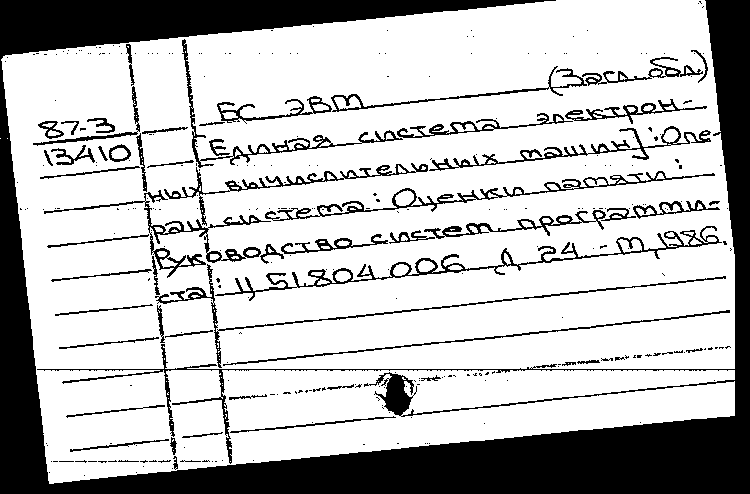 (Загл. обл.)
87-3
13410
ЕС ЭВМ
[Единая система электрон-
ных вычислительных машин]: Опе-
рац. система: Оценки памяти:
Руководство систем. программи-
ста: Ц51.804.006 Д 24. - М, 1986.